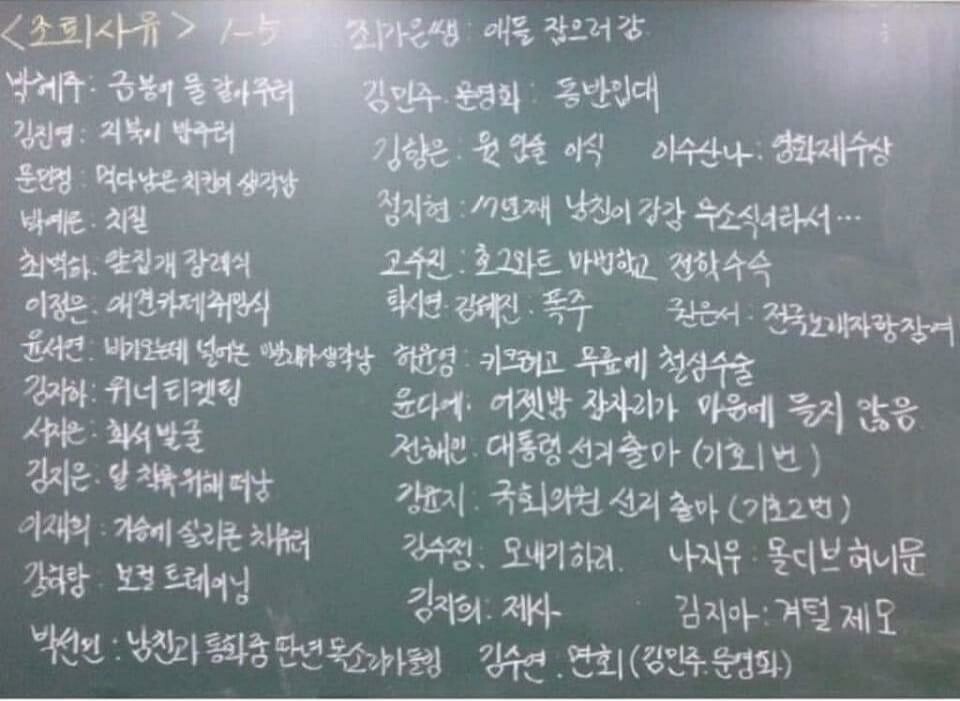 <조퇴사유> 1-5
박혜주: 금붕어 물 갈아주러
김진영: 거북이 밥주러
문민정: 먹다남은 치킨이 생각남
박예른: 치질
최벽하: 앞집개 장례식
이정은: 애견카페취임식
윤서연: 비가오는데 널어논 빨래가 생각남
김자하: 위너 티켓팅
서지은: 화석 발굴
김지은: 달 착륙 위해 떠남
이재희: 가슴에 실리콘 채우러
강하람: 보컬 트레이닝
박선민: 남친과 통화중 딴년 목소리가 들림
최가은쌤: 애들 잡으러 감
김민주.문영화: 동반입대
김향은: 윗 입술 이식 이수산나: 영화제수상
정지현: 17년째 남친이 감감 무소식이라서…
고수진: 호그와트 마법학교 전학수속
탁시연.김혜진: 폭주 권은서: 전국노래자랑참여
하윤영: 키크려고 무릎에 철심수술
윤다예: 어젯밤 잠자리가 마음에 들지 않음
전해인: 대통령 선거 출마 (기호1번)
강윤지: 국회의원 선거 출마 (기호2번)
김수정: 모내기하러. 나지우: 몰디브허니문
김지희: 제사 김지아: 겨털 제모
김수연: 면회(김민주.문영화)